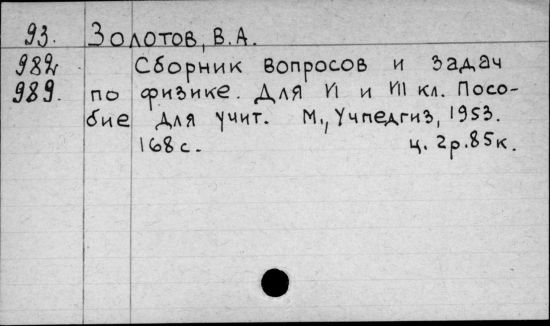 93. Золотов, В.А.
982 Сборник вопросов и задач
989. по физике. Для VI и VII кл. Посо-
бие для учит. М., Учпедгиз, 1953.
168 с. ц. 2р.85к.